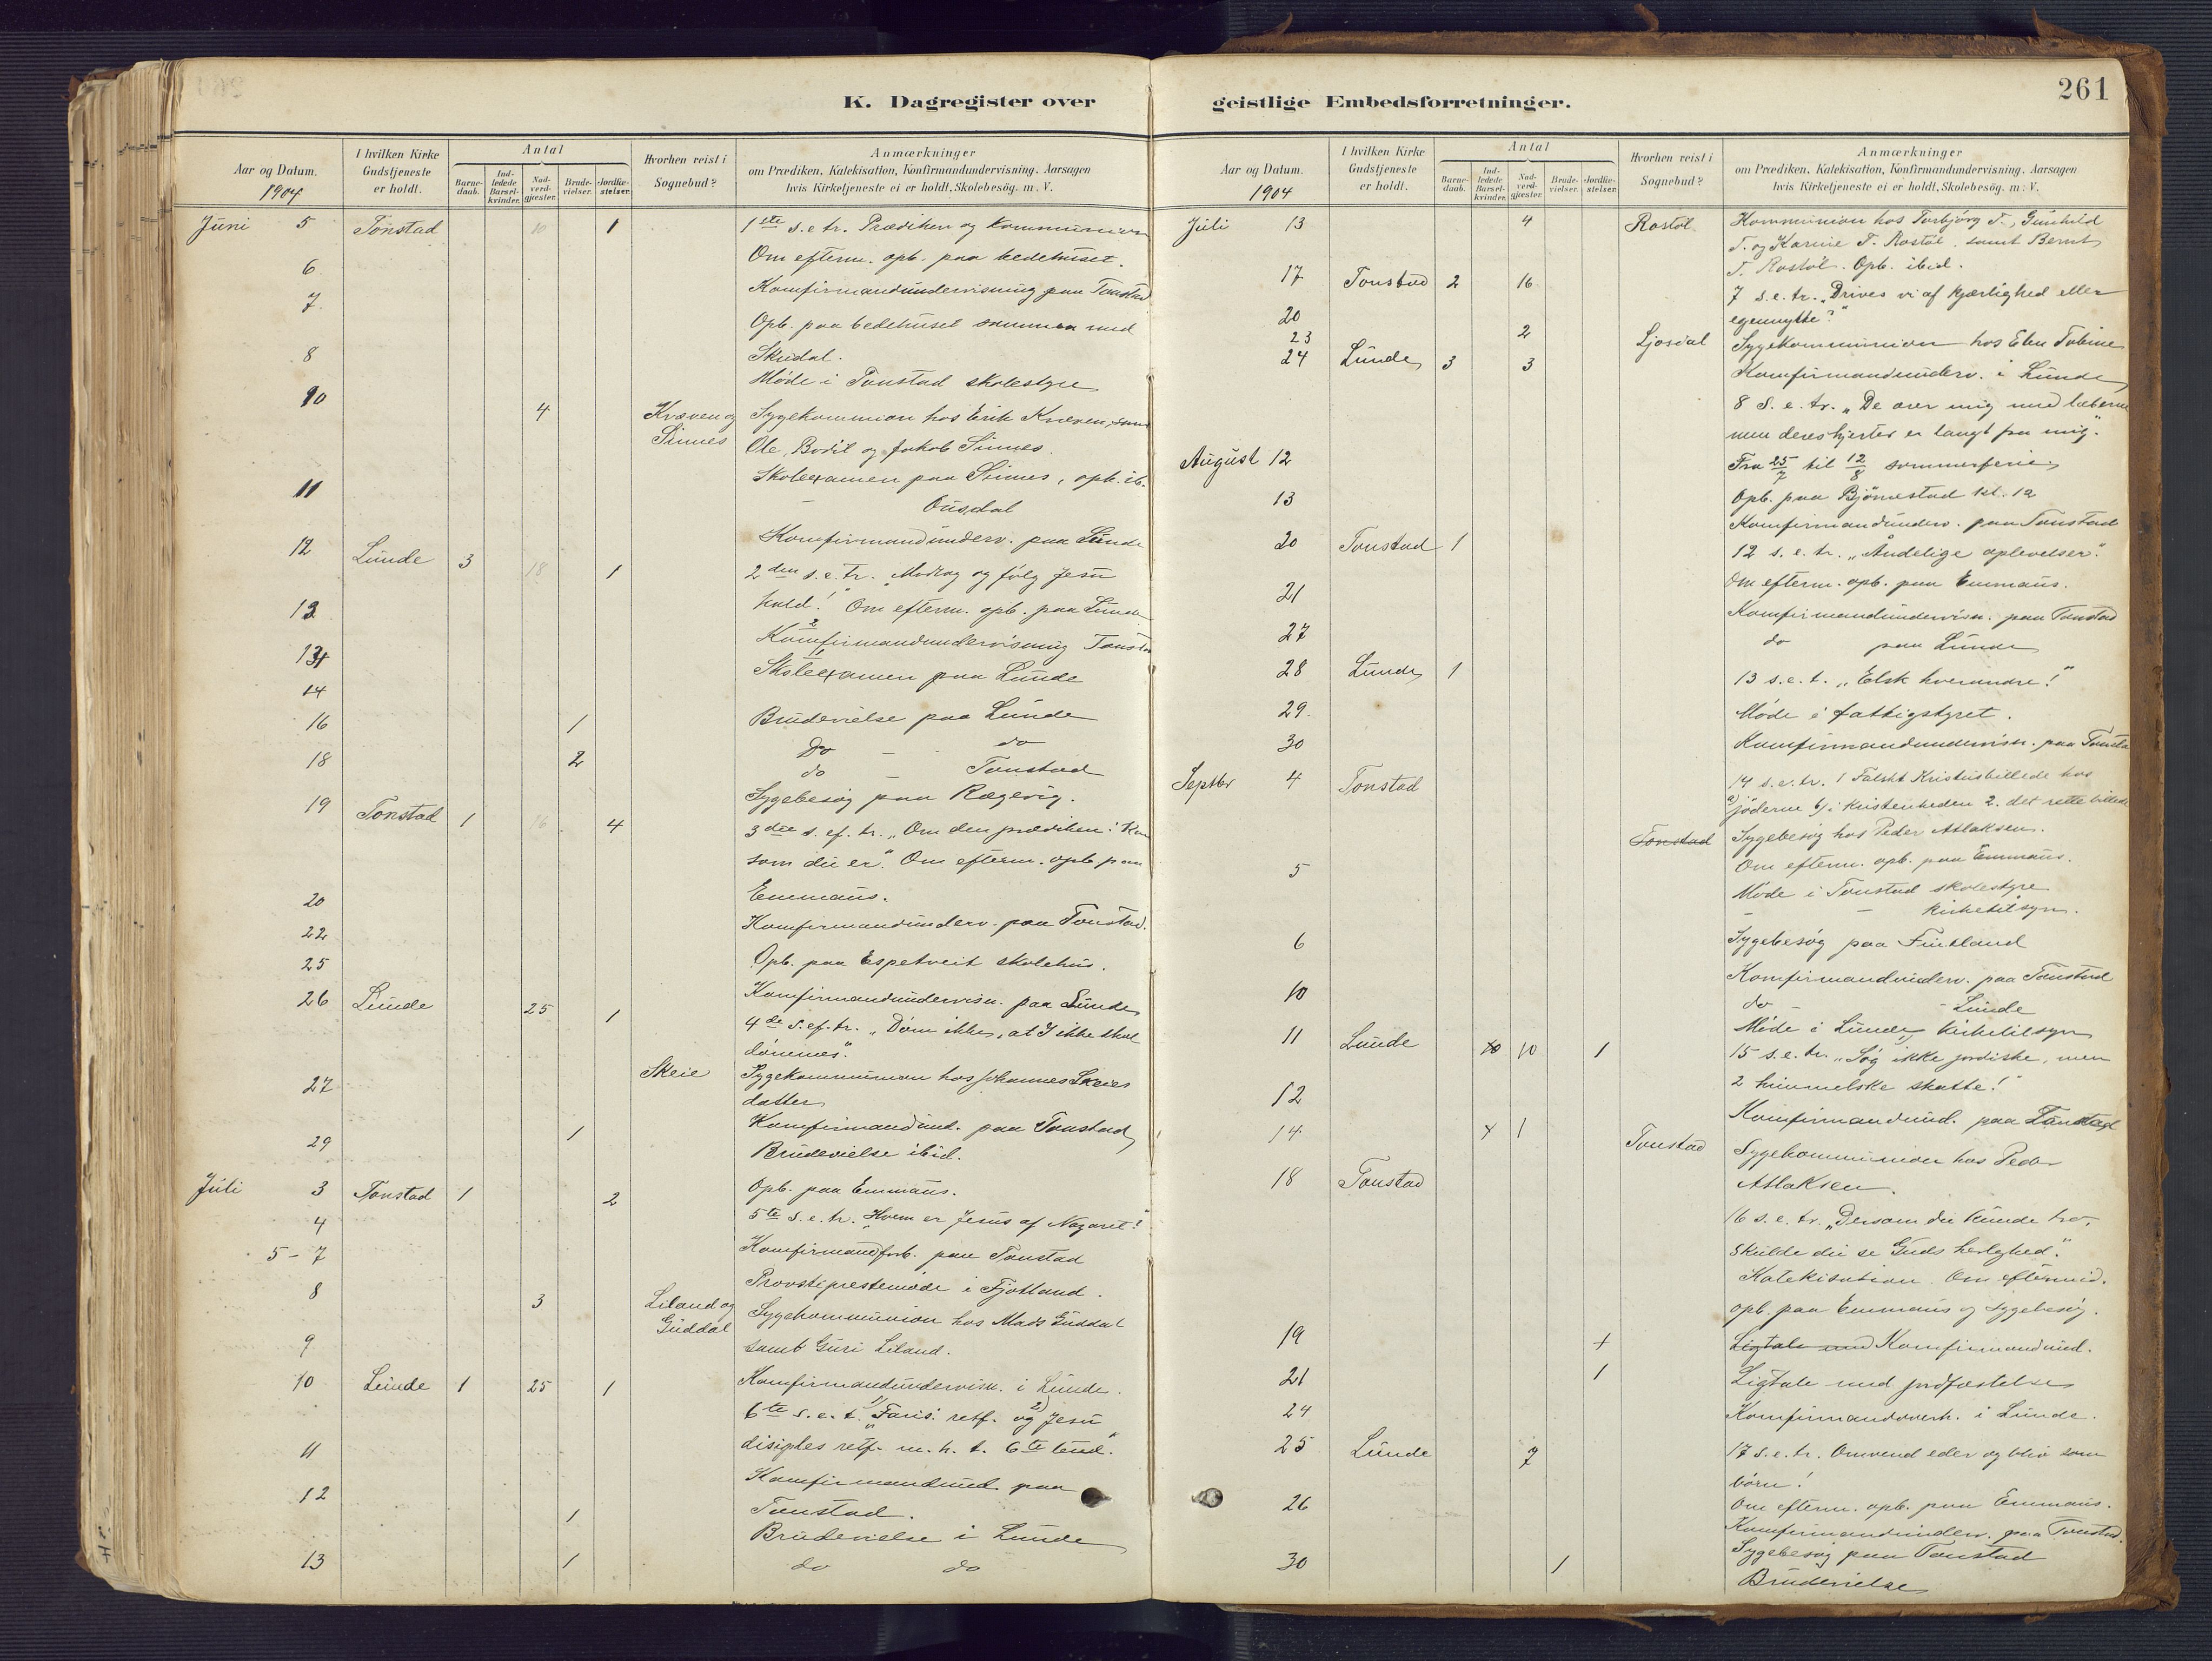 K. Dagregister over
Aar og Datum.
1904
I hvilken Kirke
Gudstjeneste
er holdt.
Antal
Barne-
daab.
Ind-
ledede
Barsel-
kvinder.
Nad-
verd-
gjæster.
Brude-
vielser.
Jordfæ-
stelser.
Hvorhen reist i
Sognebud?
Anmærkninger
om Prædiken, Katekisation, Konfirmandundervisning. Aarsagen
hvis Kirketjeneste ei er holdt. Skolebesög. m. V.
Juni 5 Tonstad 10 1 1ste s. e tr. Prædiken og kommunion
Om efterm. opb. paa bedehuset.
6 Konfirmandundervisning paa Tonstad
7 Opb. paa bedehuset sammen med
Skrudal.
8 Møde i Tonstad skolestyre
10 4 Kvæven og Sygekommion hos Erik Kvæven, samt
Sinnes Ole, Bodil og Jakob Sinnes.
Skoleexamen paa Sinnes, opb. ib.
11 — Ousdal
Konfirmandunderv. paa Lunde
12 Lunde 3 18 1 2den s. e. tr. Modtag og følg Jesu
kald! Om efterm. opb. paa Lunde
13 Konfirmandundervisning Tonstad
14 Skoleexamen paa Lunde
14
16 1 Brudevielse paa Lunde
Do — do
18 2 do — Tonstad
Sygebesøg paa Rægevig.
19 Tonstad 1 16 4 3die s. ef. tr. „Om den prædiken: Kom
som du er". Om efterm. opb. paa
Emmaus.
20 Konfirmandunderv. paa Tonstad.
22 Opb. paa Espetveit skolehus.
25 Konfirmandundervisn. paa Lunde
26 Lunde 25 1 4de s. ef. tr. „Døm ikke, at I ikke skal
dømmes".
Skeie Sygekommunion hos Johannes Skeies
datter
27 Konfirmandund. paa Tonstad
1 Brudevielse ibid.
29 Opb. paa Emmaus.
Juli 3 Tonstad 1 2 5te s. e. tr. „Hvem er Jesus af Nazaret?"
4 Konfirmandforb. paa Tonstad
5-7 Provstiprestemøde i Fjotland.
8 3 Liland og Sygekommunion hos Mads Guddal
Guddal samt Guri Liland.
9 Konfirmandundervisn. i Lunde.
10 Lunde 1 25 1 6te s. e. t. 1) „Faris. retf. og 2) Jesu
disiples retf. m. h. t. 6te bud."
11 Konfirmandund. paa
Tonstad.
12 1 Brudevielse i Lunde
13 1 do do
geistlige Embedsforretninger.
261
Aar og Datum.
1904
I hvilken Kirke
Gudstjeneste
er holdt.
Antal
Barne-
daab.
Ind-
ledede
Barsel-
kvinder.
Nad-
verd-
gjæster.
Brude-
vielser.
Jordfæ-
stelser.
Hvorhen reist i
Sognebud?
Anmærkninger
om Prædiken, Katekisation, Konfirmandundervisning. Aarsagen
hvis Kirketjeneste ei er holdt. Skolebesög. m. V.
Juli 13 4 Rostøl Kommunion hos Torbjørg T., Gunhild
T. og Karine T. Rostøl, samt Bernt
T. Rostøl. Opb. ibid.
17 Tonstad 2 16 7 s. e. tr. „Drives vi af kjærlighed eller
egennytte?"
20
23 2 Ljosdal Sygekommunion hos Elen Tobine
24 Lunde 3 3 Konfirmandunderv. i Lunde
8 s. e. tr. „De ærer mig med læberne
men deres hjerter er langt fra mig."
Fra 25/7 til 12/8 sommerferie
August 12 Opb. paa Bjørnestad kl. 12
13 Konfirmandunderv. paa Tonstad
20 Tonstad 1 12 s. e. tr. „Åndelige oplevelser."
Om efterm. opb. paa Emmaus.
21 Konfirmandundervisn. paa Tonstad
27 do paa Lunde
28 Lunde 1 13 s. e. t. „Elsk hverandre!"
29. Møde i fattigstyret.
30 Konfirmandundervisn. paa Tonstad
Septbr 4 Tonstad 14 s. e. tr. 1 Falskt Kristusbillede hos
a) jøderne b) i kristenheden 2. det rette billede
Tonstad Sygebesøg hos Peder Atlaksen.
Om efterm. opb. paa Emmaus.
5 Møde i Tonstad skolestyre
— — kirketilsyn.
6 Sygebesøg paa Finkland
Konfirmandunderv. paa Tonstad
10 do — - Lunde
Møde i Lunde kirketilsyn
11 Lunde 10 10 1 15 s. e. tr. „Søg 1) ikke jordiske, men
2 himmelske skatte!"
12 Konfirmandund. paa Tonstad
14 1 Tonstad Sygekommunion hos Peder
Atlaksen.
18 Tonstad 16 s. e. tr. „Dersom du kunde tro,
skulde du se Guds herlighed."
Katekisation. Om eftermid.
opb. paa Emmaus og sygebesøg.
19 Ligtale med Konfirmandund.
21 1 Ligtale med jordfæstelse
24 Konfirmandoverh. i Lunde.
25 Lunde 7 17 s. e. tr. Omvend eder og bliv som
børn!
Om efterm. opb. paa Emmaus.
26 Konfirmandunderv. paa Tonstad.
Sygebesøg paa Tonstad
30 1 Brudevielse